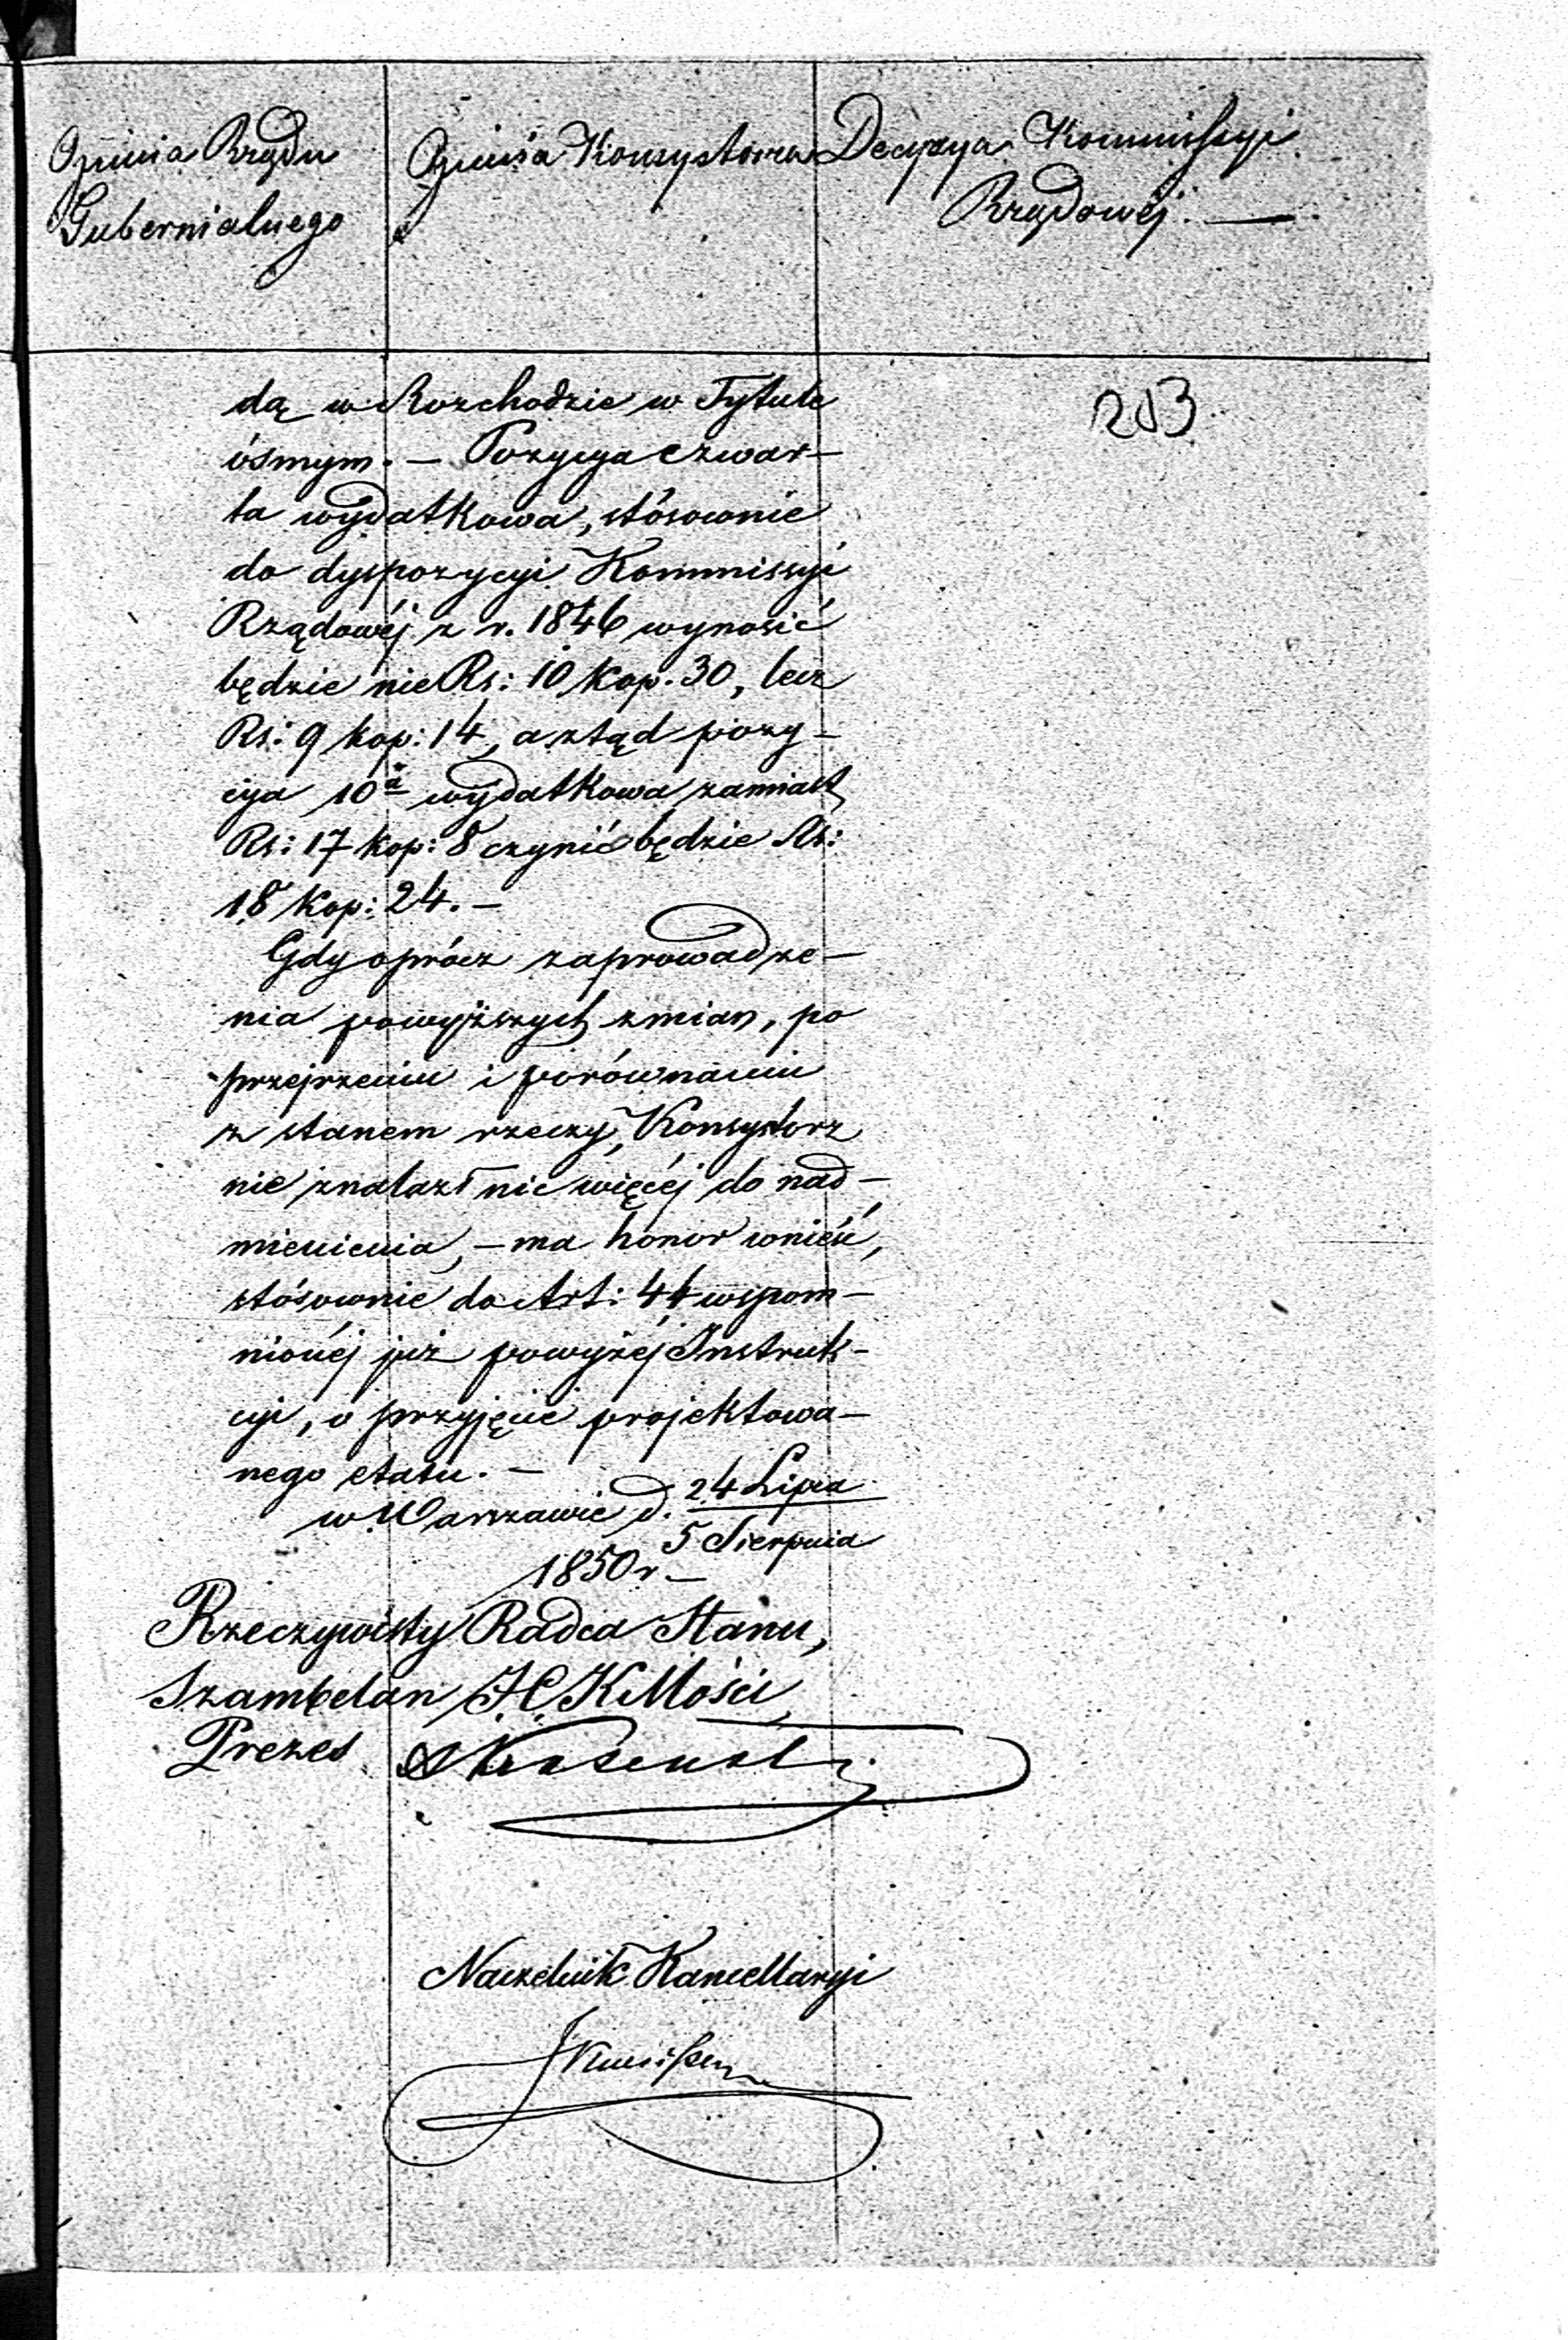 Opinia Rządu
Gubernialnego
Opinia Konsystorza
Decyzya Kommissyi
Rządowéj. —
203
dą w Rozchodzie w Tytule
ósmym. — Pozycya czwar—
ta wydatkowa, stósownie
do dyspozycyi Kommissyi
Rządowéj z r. 1846 wynosić
będzie nie Rs: 10 kop. 30, lecz
Rs: 9 kop: 14, a ztąd pozy—
cya 10ª wydatkowa zamiast
Rs: 17 kop: 8 czynić będzie Rs:
18 kop: 24. —
Gdy oprócz zaprowadze—
nia powyższych zmian, po
przejrzeniu i porównaniu
z stanem rzeczy, Konsystorz
nie znalazł nic więcéj do nad—
mienienia, — ma honor wnieść,
stósownie do Art: 44 wspom—
nionéj już powyżéj Instruk—
cyi, o przyjęcie projektowa—
nego etatu. —
w Warszawie d. 24 Lipca
5 Sierpnia
1850 r —
Rzeczywisty Radca Stanu,
Szambelan J. C. K. Mości
Prezes
Naczelnik Kancellaryi